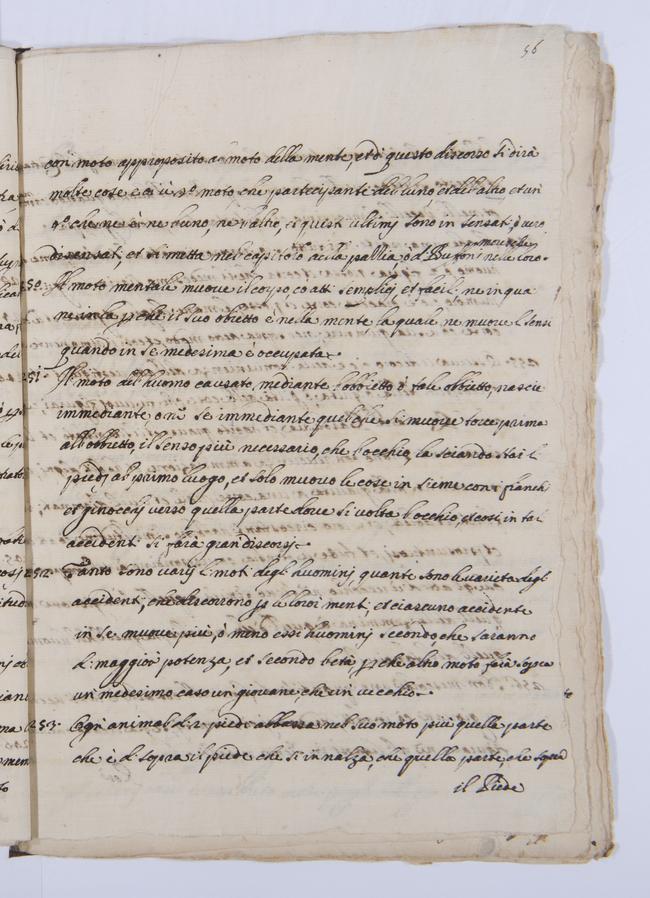 56
con moto approposito a moto della mente, et di questo discorso si dirà
molte cose e ci è p.º moto, che partecipante del'uno, et del'altro, et un
4.º che ne è ne l'uno, ne l'altro, et questi ultimi sono insensati, ò vero
disensati, et si metta nel capitolo della pallia, ò d. Buffoni nel coro.
250. Il moto mentale muove il corpo, co atti semplici et facili, ne in qua
ne in là, perche il suo obbietto è nella mente, la quale ne muove i sensi
quando in se medesima è occupata.
251. Il moto del'huomo causato, mediante l'obbietto ò tale obbietto, nascie
immediante, o nò se immediante quel che si muove torce prima
all'obbietto, il senso più necessario, che l'occhio, lasciando stari li
piedj al primo luogo, et solo muove le cose insieme con i fianchi
et ginocchj verso quella parte dove si volta l'occhio, et così in tal
accidenti si farà gran discorsj.
252. Tanto sono varij li moti degli huominj, quante sono le varietà degl
accidenti, che discorrono p le loro menti, et ciascuno accidente
in se muove più, ò meno essi huominj secondo che saranno
di maggior potenza, et secondo l'età, perche altro moto farà sopra
un medesimo caso un giovane, che un vecchio.
253. Ogni animal di 2 piedi abbassa nel suo moto più quella parte
che è di sopra il piede che s'innalza, che quella parte, che sopra
il Piede